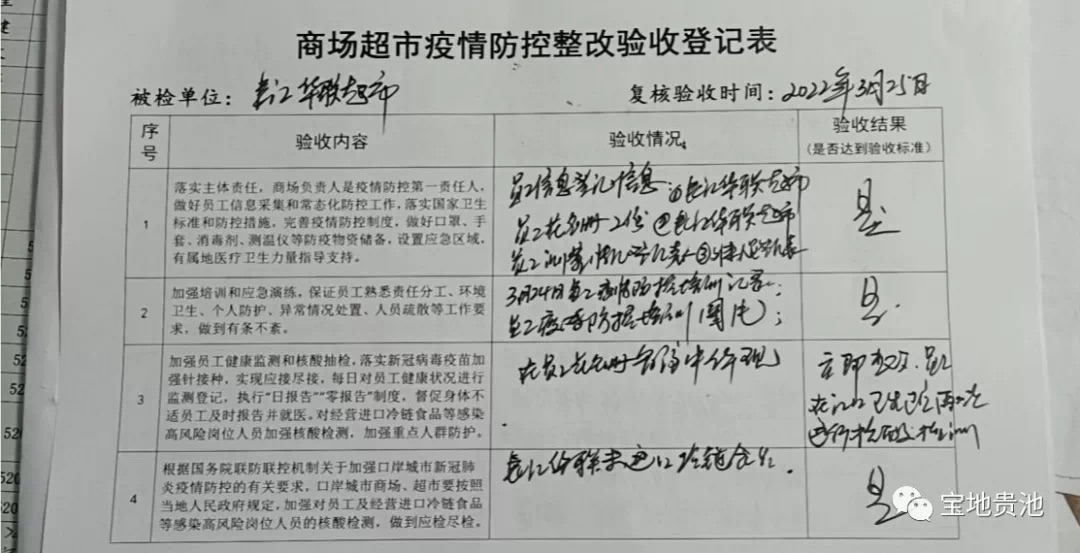 商场超市疫情防控整改验收登记表
被检单位：长江华联超市
复核验收时间：2022年3月25日
序号
验收内容
验收情况
验收结果
（是否达到验收标准）
1
落实主体责任，商场负责人是疫情防控第一责任人，
做好员工信息采集和常态化防控工作，落实国家卫生
标准和防控措施，完善疫情防控制度，做好口罩、手
套、消毒剂、测温仪等防疫物资储备，设置应急区域，
有属地医疗卫生力量指导支持。
员工信息登记信息 ①长江华联超市
员工花名册 ②长江华联超市
员工
是
2
加强培训和应急演练，保证员工熟悉责任分工、环境
卫生、个人防护、异常情况处置、人员疏散等工作要
求，做到有条不紊。
3月24日员工疫情防控培训记录；
员工疫情防控培训（图片）；
是
3
加强员工健康监测和核酸抽检，落实新冠病毒疫苗加
强针接种，实现应接尽接，每日对员工健康状况进行
监测登记，执行“日报告”“零报告”制度，督促身体不
适员工及时报告并就医。对经营进口冷链食品等感染
高风险岗位人员加强核酸检测，加强重点人群防护。
在员工花名册备注中体现
立即整改，员工
在江口卫生院
进行核酸检测
4
根据国务院联防联控机制关于加强口岸城市新冠肺
炎疫情防控的有关要求，口岸城市商场、超市要按照
当地人民政府规定，加强对员工及经营进口冷链食品
等感染高风险岗位人员的核酸检测，做到应检尽检。
长江华联未进口冷链食品．
是
宝地贵池